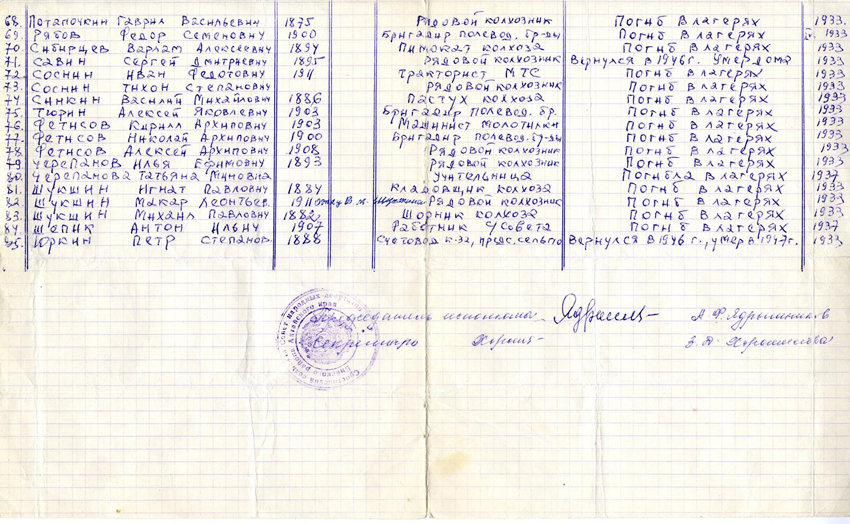 68. Потапочкин Гаврил Васильевич 1875 Рядовой колхозник Погиб в лагерях 1933.
69. Рябов Федор Семенович 1900 Бригадир полевод. бр-ды Погиб в лагерях 1933
70. Сибирцев Варлам Алексеевич 1894 Пимокат колхоза Погиб в лагерях 1933
71. Савин Сергей Дмитриевич 1895 Рядовой колхозник Вернулся в 1946 г. Умер дома 1933
72. Соснин Иван Федотович 1911 Тракторист МТС Погиб в лагерях 1933
73. Соснин Тихон Степанович Рядовой колхозник Погиб в лагерях 1933
74. Синкин Василий Михайлович 1886 Пастух колхоза Погиб в лагерях 1933
75. Тюрин Алексей Яковлевич 1903 Бригадир полевод. бр. Погиб в лагерях 1933
76. Фетисов Кирилл Архипович 1903 Машинист молотилки Погиб в лагерях 1933
77. Фетисов Николай Архипович 1900 Бригадир полевод. бр-ды Погиб в лагерях 1933
78. Фетисов Алексей Архипович 1908 Рядовой колхозник Погиб в лагерях 1933
79. Черепанов Илья Ефимович 1893 Рядовой колхозник Погиб в лагерях 1933
80. Черепанова Татьяна Миновна Учительница Погибла в лагерях 1937
81. Шукшин Игнат Павлович 1884 Кладовщик колхоза Погиб в лагерях 1933
82. Шукшин Макар Леонтьев. 1911 отец В. М. Шукшина Рядовой колхозник Погиб в лагерях 1933
83. Шукшин Михаил Павлович 1882 Шорник колхоза Погиб в лагерях 1933
84. Шепик Антон Ильич 1907 Работник с/Совета Погиб в лагерях 1937
85. Юркин Петр Степанов. 1888 Счетовод к-за, предс. сельпо Вернулся в 1946 г., умер в 1947 г. 1933
Председатель исполкома А. Ф. Ядрышников
Секретарь